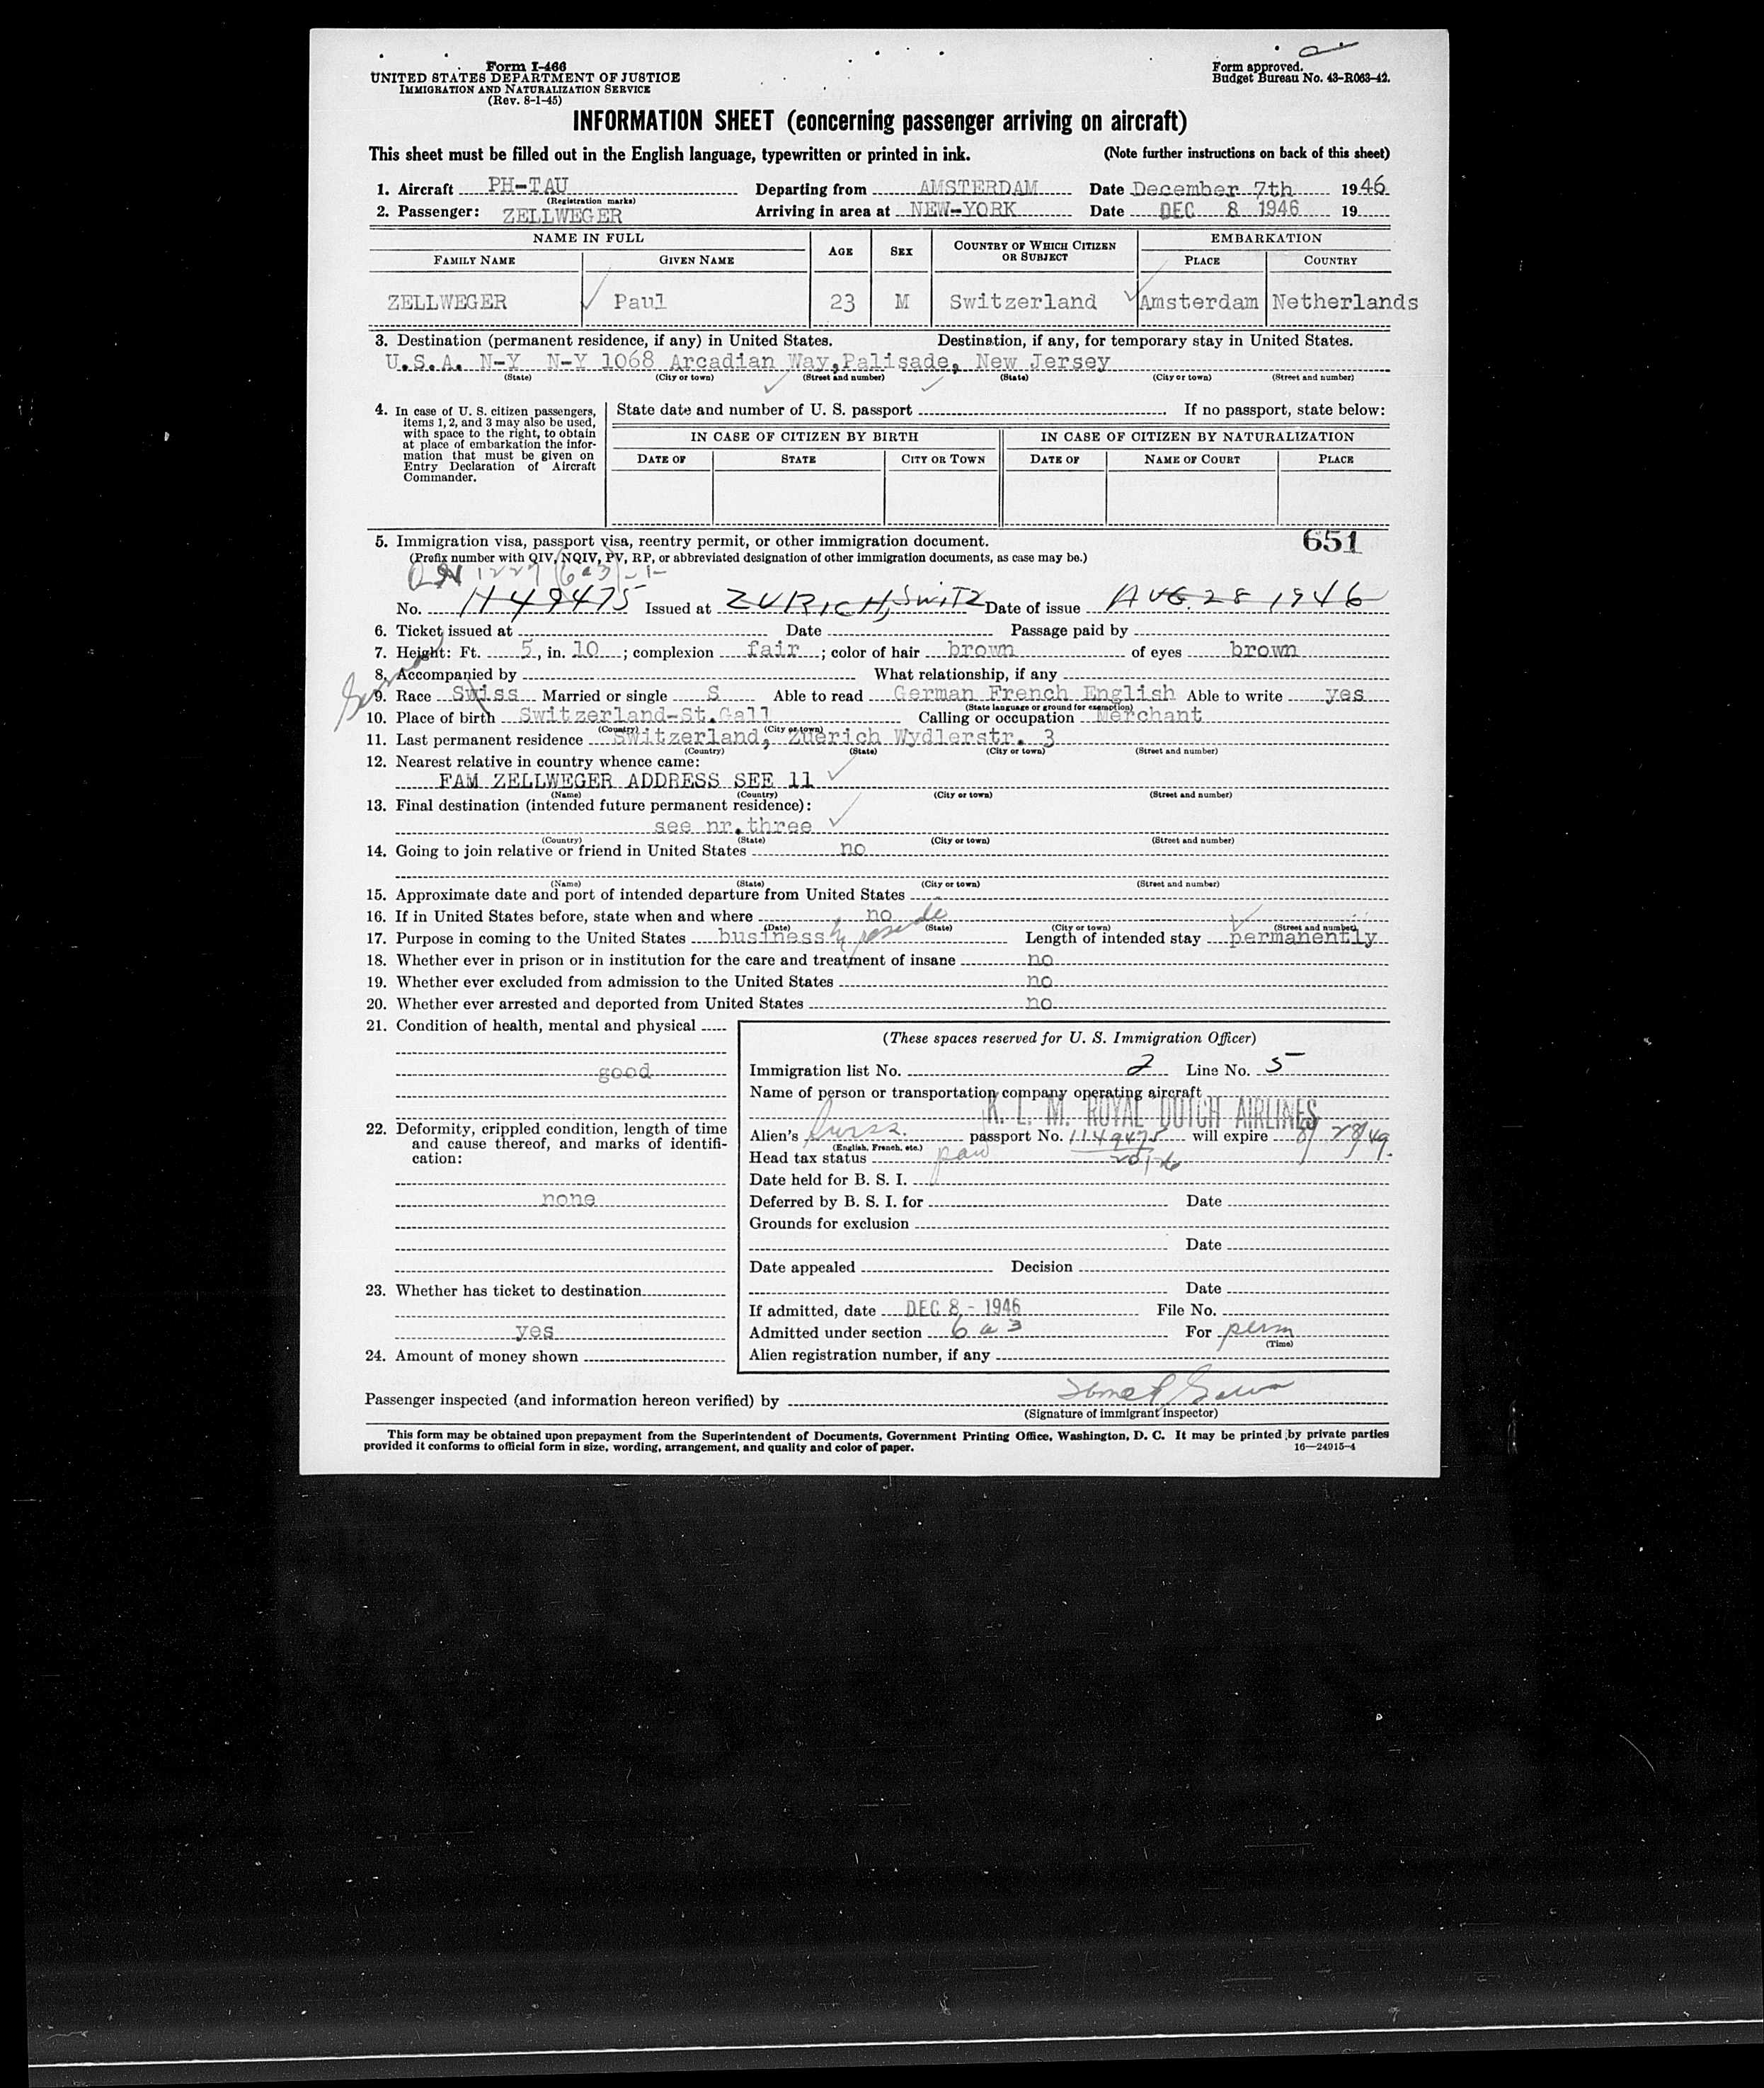 Form I-466
UNITED STATES DEPARTMENT OF JUSTICE
IMMIGRATION AND NATURALIZATION SERVICE
(Rev. 8-1-45)
Form approved.
Budget Bureau No. 43-R063-42.
INFORMATION SHEET (concerning passenger arriving on aircraft)
This sheet must be filled out in the English language, typewritten or printed in ink. (Note further instructions on back of this sheet)
1. Aircraft PH-TAU Departing from AMSTERDAM Date December 7th 1946
(Registration marks)
2. Passenger: ZELLWEGER Arriving in area at NEW-YORK Date DEC 8 1946 19
NAME IN FULL AGE SEX COUNTRY OF WHICH CITIZEN OR SUBJECT EMBARKATION
FAMILY NAME GIVEN NAME PLACE COUNTRY
ZELLWEGER Paul 23 M Switzerland Amsterdam Netherlands
3. Destination (permanent residence, if any) in United States. Destination, if any, for temporary stay in United States.
U.S.A. N-Y N-Y 1068 Arcadian Way, Palisade, New Jersey
(State) (City or town) (Street and number) (State) (City or town) (Street and number)
4. In case of U. S. citizen passengers, items 1, 2, and 3 may also be used, with space to the right, to obtain at place of embarkation the information that must be given on Entry Declaration of Aircraft Commander.
State date and number of U. S. passport If no passport, state below:
IN CASE OF CITIZEN BY BIRTH IN CASE OF CITIZEN BY NATURALIZATION
DATE OF STATE CITY OR TOWN DATE OF NAME OF COURT PLACE
5. Immigration visa, passport visa, reentry permit, or other immigration document. 651
(Prefix number with QIV, NQIV, PV, RP, or abbreviated designation of other immigration documents, as case may be.)
1227 (6a3)
No. 1149475 Issued at ZURICH, SWITZ Date of issue AUG. 28 1946
6. Ticket issued at Date Passage paid by
7. Height: Ft. 5, in. 10; complexion fair; color of hair brown of eyes brown
8. Accompanied by What relationship, if any
9. Race Swiss Married or single S Able to read German French English Able to write yes
(State language or ground for exemption)
10. Place of birth Switzerland-St.Gall Calling or occupation Merchant
(Country) (City or town)
11. Last permanent residence Switzerland, Zuerich Wydlerstr. 3
(Country) (State) (City or town) (Street and number)
12. Nearest relative in country whence came:
FAM ZELLWEGER ADDRESS SEE 11
(Name) (Country) (City or town) (Street and number)
13. Final destination (intended future permanent residence):
see nr. three
(Country) (State) (City or town) (Street and number)
14. Going to join relative or friend in United States no
(Name) (State) (City or town) (Street and number)
15. Approximate date and port of intended departure from United States
16. If in United States before, state when and where no
(Date) (State) (City or town) (Street and number)
17. Purpose in coming to the United States business reside Length of intended stay permanently
18. Whether ever in prison or in institution for the care and treatment of insane no
19. Whether ever excluded from admission to the United States no
20. Whether ever arrested and deported from United States no
21. Condition of health, mental and physical
good
22. Deformity, crippled condition, length of time and cause thereof, and marks of identification:
none
23. Whether has ticket to destination
yes
24. Amount of money shown
(These spaces reserved for U. S. Immigration Officer)
Immigration list No. 2 Line No. 5
Name of person or transportation company operating aircraft
K. L. M. ROYAL DUTCH AIRLINES
Alien's Swiss passport No. 1149475 will expire 8/28/49.
(English, French, etc.)
Head tax status paid
Date held for B. S. I.
Deferred by B. S. I. for Date
Grounds for exclusion
Date
Date appealed Decision
Date
If admitted, date DEC 8 - 1946 File No.
Admitted under section 6 a 3 For perm
(Time)
Alien registration number, if any
Passenger inspected (and information hereon verified) by
(Signature of immigrant inspector)
This form may be obtained upon prepayment from the Superintendent of Documents, Government Printing Office, Washington, D. C. It may be printed by private parties
provided it conforms to official form in size, wording, arrangement, and quality and color of paper. 16—24915-4